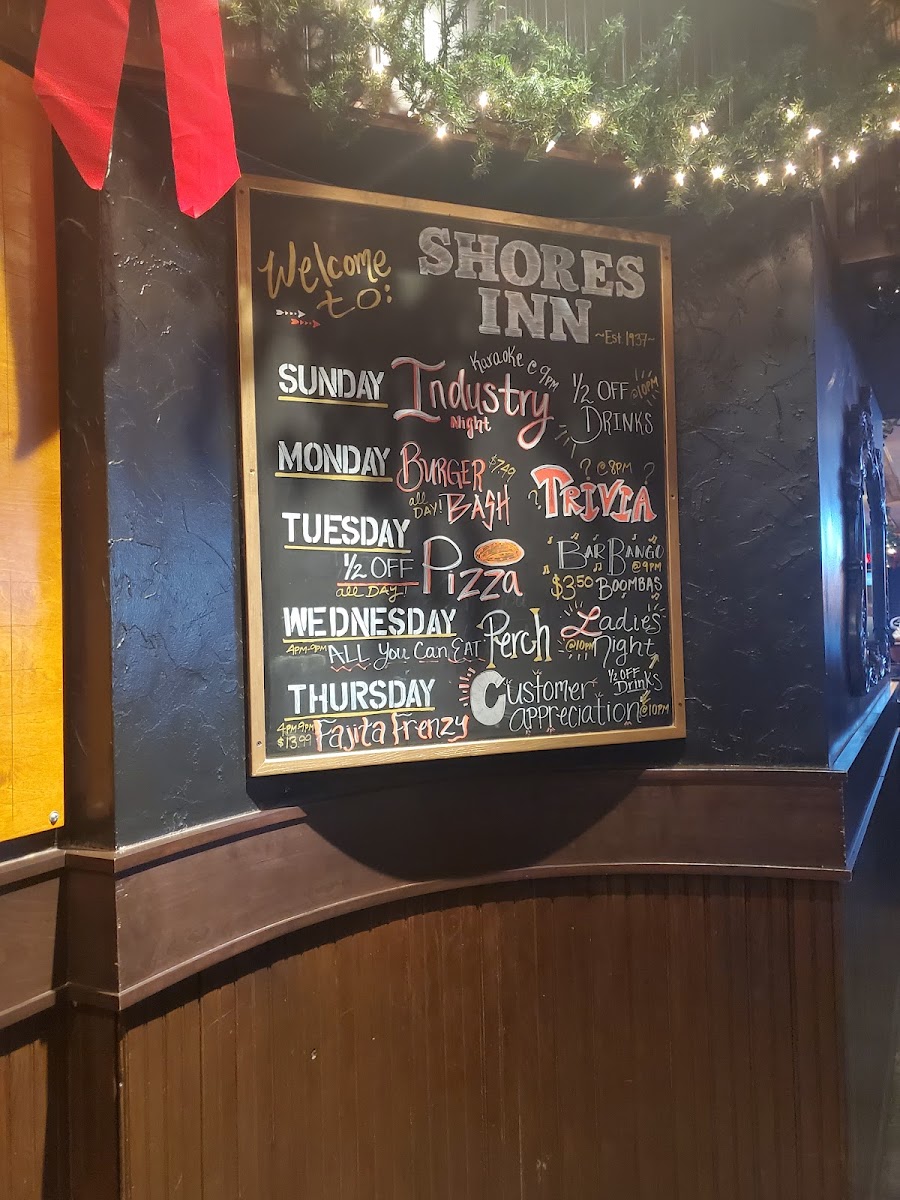 Welcome
to:
SHORES
INN
~Est. 1937~
SUNDAY
Industry
Night
Karaoke @ 9pm
1/2 OFF @10PM
DRINKS
MONDAY
BURGER $7.49
all DAY! BASH
? @ 8PM ?
? TRIVIA
TUESDAY
1/2 OFF
all DAY!
Pizza
BAR BANGO
@ 9PM
$3.50 BOOMBAS
WEDNESDAY
4PM-9PM ALL You Can EAT
Perch
Ladies
@10PM Night
1/2 OFF
Drinks
THURSDAY
4PM-9PM
$13.99 Fajita Frenzy
Customer
appreciation @10PM